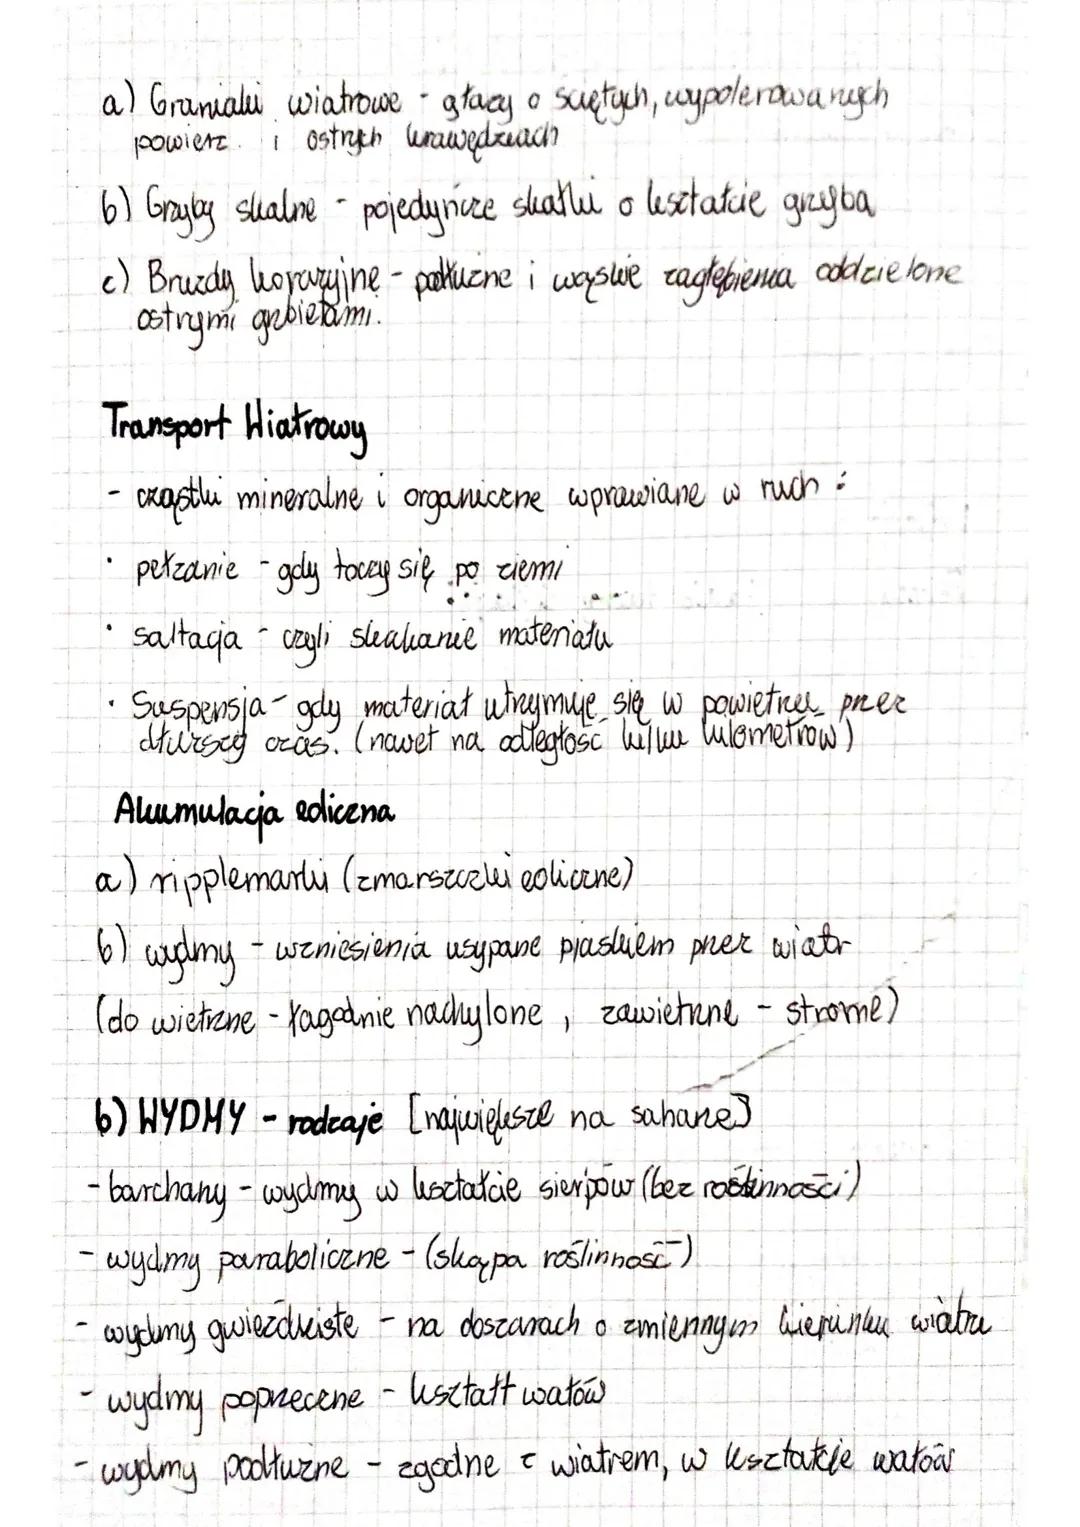 a) Graniaki wiatrowe - głazy o ściętych, wypolerowanych
powierz. i ostrych krawędziach
b) Grzyby skalne - pojedyńcze skałki o kształcie grzyba
c) Bruzdy korazyjne - podłużne i wąskie zagłębienia oddzielone
ostrymi grzbietami.
Transport Wiatrowy
- cząstki mineralne i organiczne wprawiane w ruch :
• pełzanie - gdy toczy się po ziemi
• saltacja - czyli skakanie materiału
• Suspensja - gdy materiał utrzymuje się w powietrzu przez
dłuższy czas. (nawet na odległość kilku kilometrów)
Akumulacja eoliczna
a) ripplemarki (zmarszczki eoliczne)
b) wydmy - wzniesienia usypane piaskiem przez wiatr
(do wietrzne - łagodnie nachylone , zawietrzne - strome)
b) WYDMY - rodzaje [największe na saharze]
- barchany - wydmy w kształcie sierpów (bez roślinności)
- wydmy paraboliczne - (skąpa roślinność)
- wydmy gwieździste - na obszarach o zmiennym kierunku wiatru
- wydmy poprzeczne - kształt wałów
- wydmy podłużne - zgodne z wiatrem, w kształcie wałów